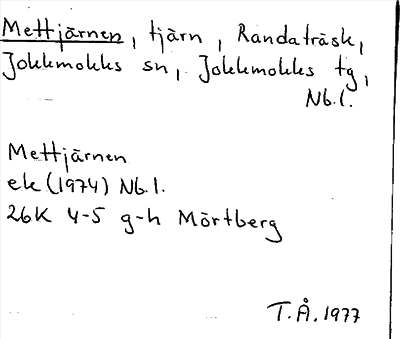 Mettjärnen, tjärn, Randaträsk,
Jokkmokks sn, Jokkmokks tg,
Nb.l.
Mettjärnen
ek (1974) Nb.l.
26K 4-5 g-h Mörtberg
T.Å. 1977